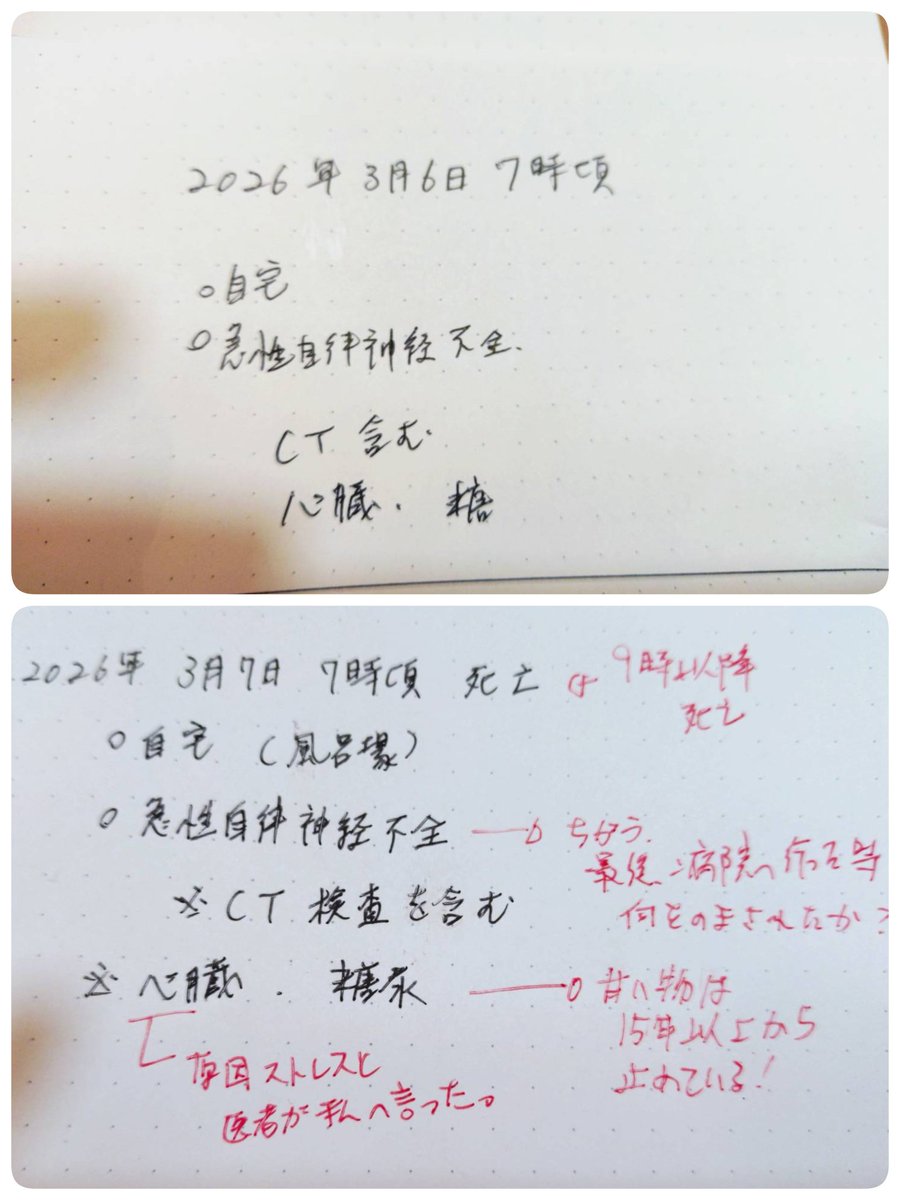 2026年 3月6日 7時頃
○自宅
○急性自律神経不全.
CT 含む
心臓. 糖
2026年 3月7日 7時頃 死亡
9時以降
死亡
○自宅 (風呂場)
○急性自律神経不全
ちがう.
最後 病院へ行って
何をのまされたか?
※CT 検査を含む
※心臓. 糖尿
甘い物は
15年以上から
止めている!
原因ストレスと
医者が私へ言った。